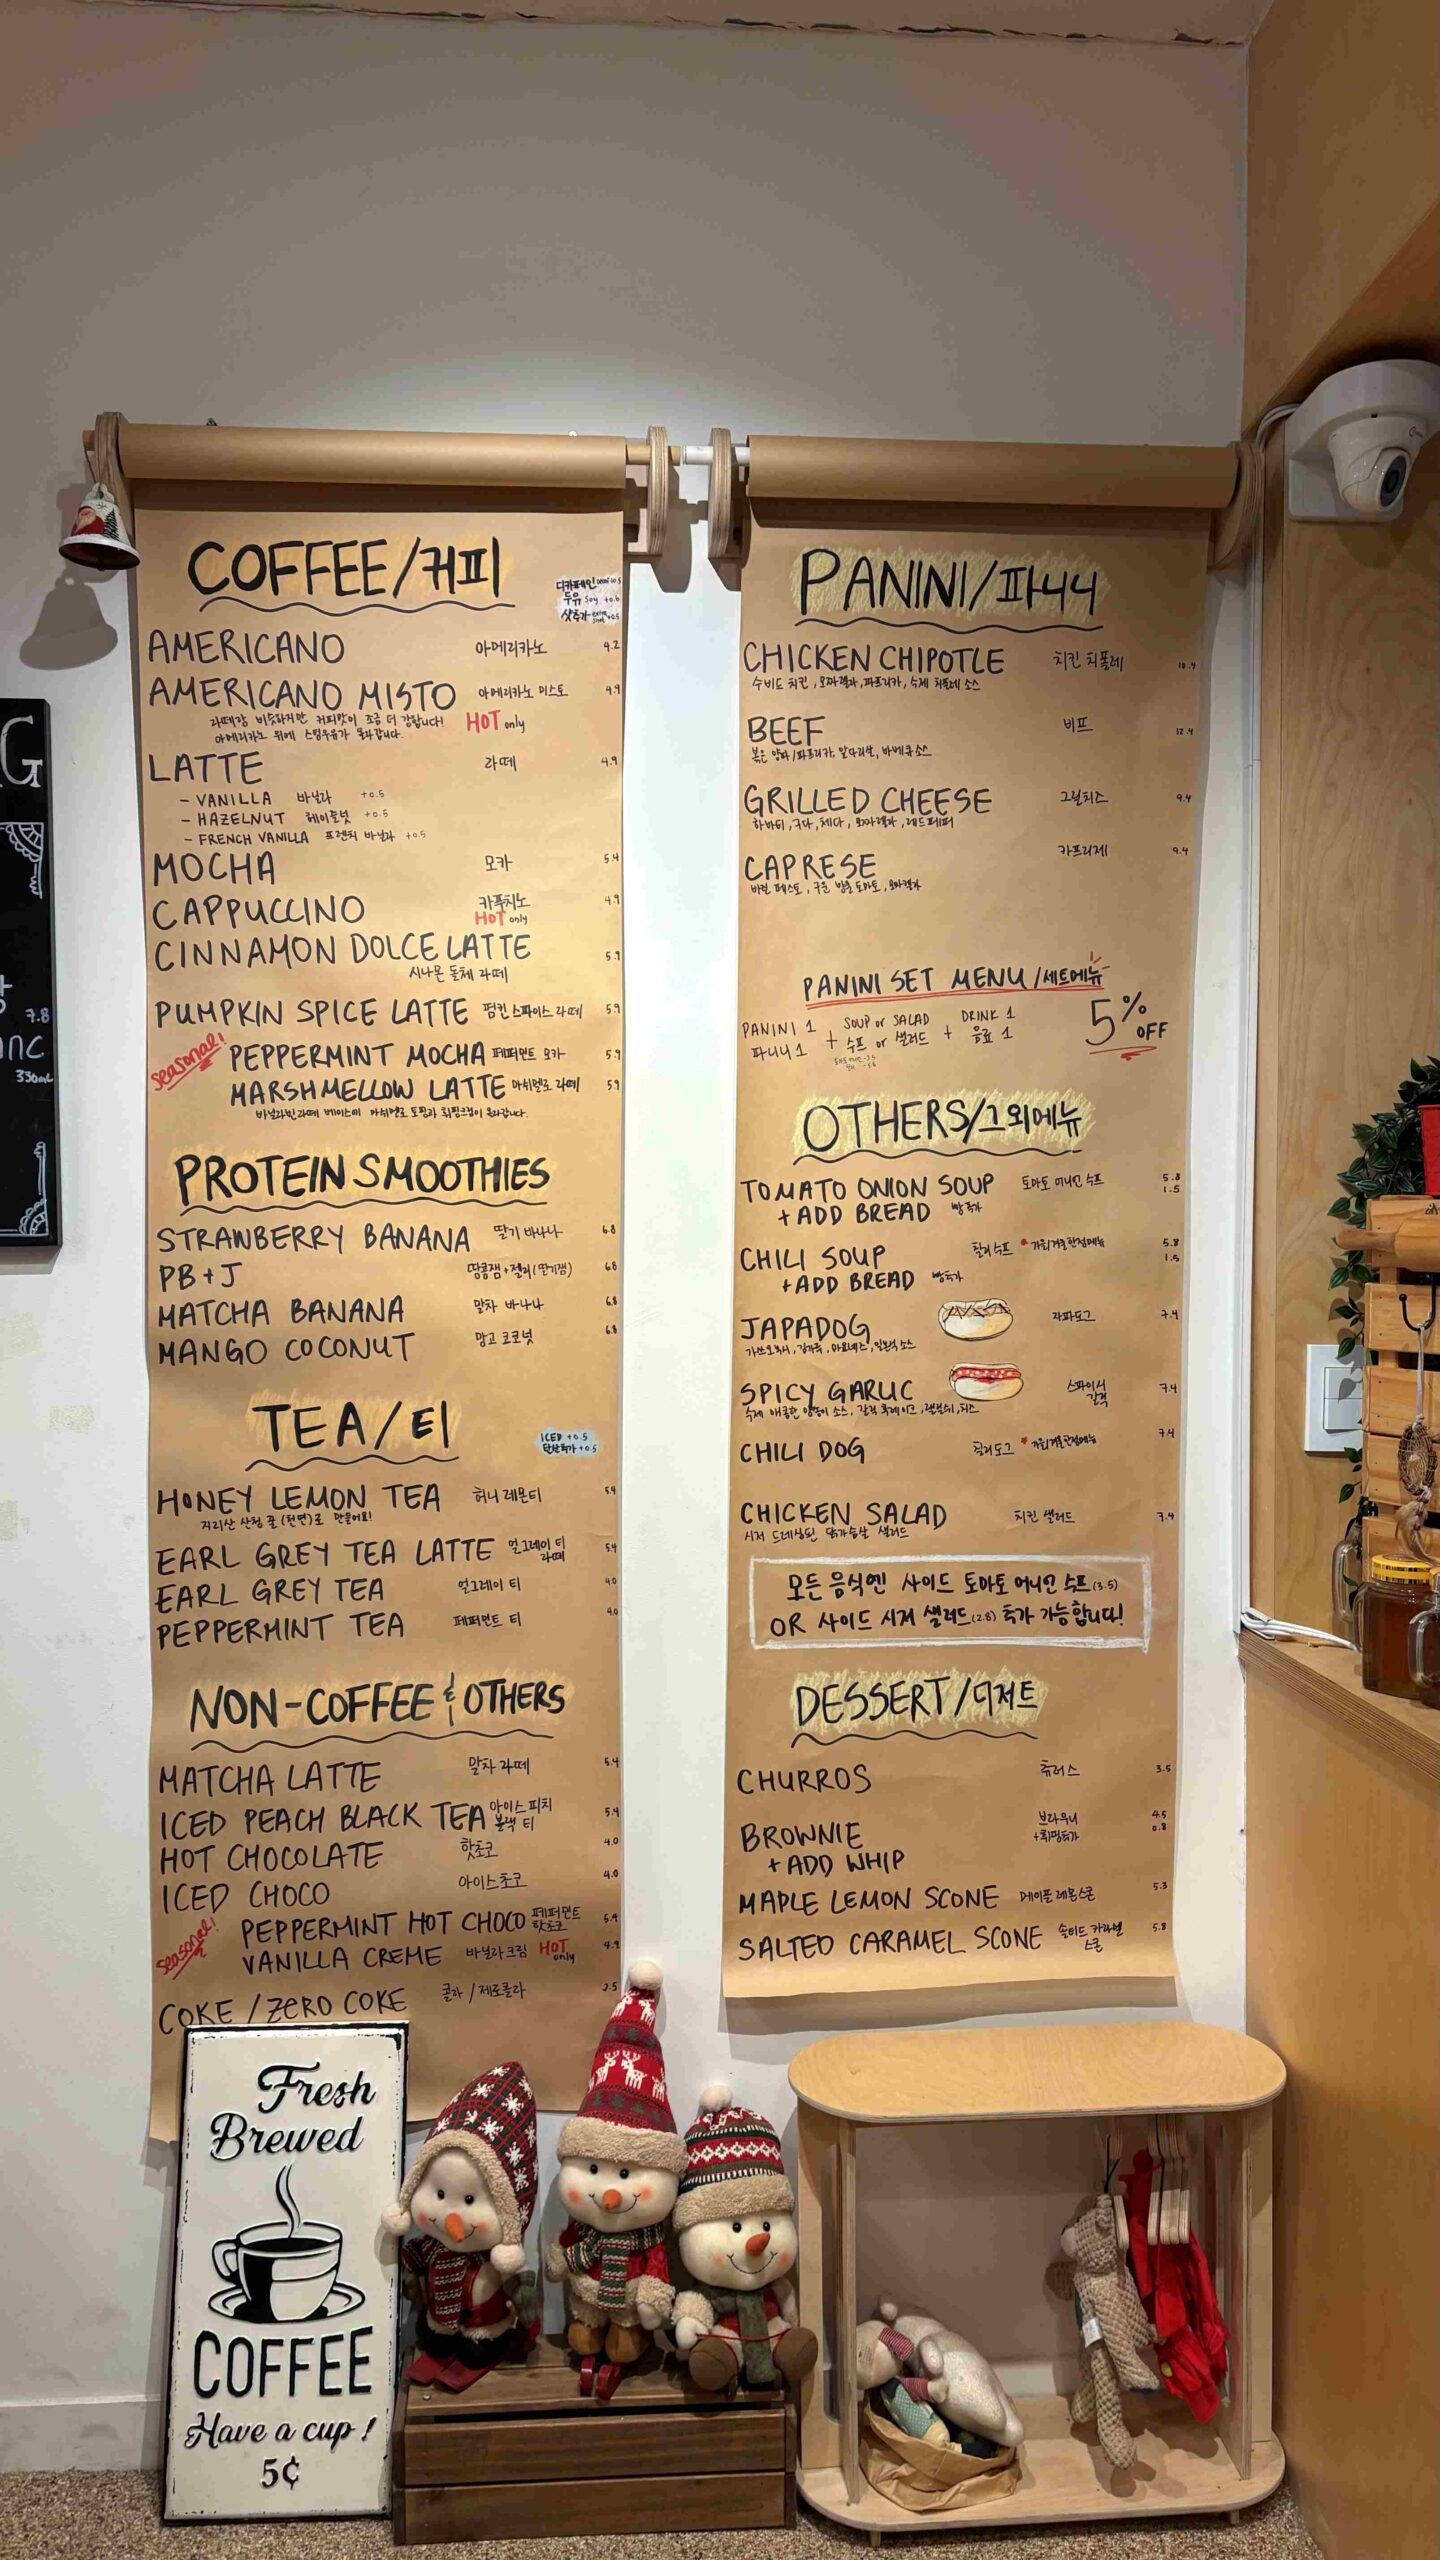 COFFEE/커피
디카페인 Decaf +0.5
두유 Soy +0.6
샷추가 extra shot +0.5
AMERICANO 아메리카노 4.2
AMERICANO MISTO 아메리카노 미스토 4.9
라떼랑 비슷하지만 커피맛이 조금 더 강합니다!
아메리카노 위에 스팀우유가 올라갑니다.
HOT only
LATTE 라떼 4.9
- VANILLA 바닐라 +0.5
- HAZELNUT 헤이즐넛 +0.5
- FRENCH VANILLA 프렌치 바닐라 +0.5
MOCHA 모카 5.4
CAPPUCCINO 카푸치노 4.9
HOT only
CINNAMON DOLCE LATTE 5.9
시나몬 돌체 라떼
PUMPKIN SPICE LATTE 펌킨 스파이스 라떼 5.9
seasonal!
PEPPERMINT MOCHA 페퍼민트 모카 5.9
MARSHMELLOW LATTE 마쉬멜로 라떼 5.9
바닐라빈라떼 베이스에 마쉬멜로 토핑과 휘핑크림이 올라갑니다.
PROTEIN SMOOTHIES
STRAWBERRY BANANA 딸기 바나나 6.8
PB+J 땅콩잼+젤리(딸기잼) 6.8
MATCHA BANANA 말차 바나나 6.8
MANGO COCONUT 망고 코코넛 6.8
TEA/티
ICED +0.5
탄산추가 +0.5
HONEY LEMON TEA 허니 레몬티 5.4
지리산 산청 꿀(천연)로 만들어요!
EARL GREY TEA LATTE 얼그레이 티 라떼 5.4
EARL GREY TEA 얼그레이 티 4.0
PEPPERMINT TEA 페퍼민트 티 4.0
NON-COFFEE & OTHERS
MATCHA LATTE 말차 라떼 5.4
ICED PEACH BLACK TEA 아이스 피치 블랙 티 5.4
HOT CHOCOLATE 핫초코 4.0
ICED CHOCO 아이스초코 4.0
seasonal!
PEPPERMINT HOT CHOCO 페퍼민트 핫초코 5.4
VANILLA CREME 바닐라 크림 HOT only 4.9
COKE / ZERO COKE 콜라 / 제로콜라 2.5
PANINI/파니니
CHICKEN CHIPOTLE 치킨 치폴레 10.4
수비드 치킨, 모짜렐라, 파프리카, 수제 치폴레 소스
BEEF 비프 12.4
볶은 양파/파프리카, 앞다리살, 바베큐소스
GRILLED CHEESE 그릴치즈 9.4
하바티, 구다, 체다, 모짜렐라, 레드페퍼
CAPRESE 카프리제 9.4
바질 페스토, 구운 방울 토마토, 모짜렐라
PANINI SET MENU/세트메뉴
PANINI 1 + SOUP or SALAD + DRINK 1
파니니 1 수프 or 샐러드 음료 1
5% OFF
OTHERS/그외메뉴
TOMATO ONION SOUP 토마토 어니언 수프 5.8
+ ADD BREAD 빵추가 1.5
CHILI SOUP 칠리수프 *가을/겨울한정메뉴 5.8
+ADD BREAD 빵추가 1.5
JAPADOG 자파도그 7.4
가쓰오부시, 김가루, 마요네즈, 일본식 소스
SPICY GARLIC 스파이시 갈릭 7.4
CHILI DOG 칠리도그 *가을/겨울한정메뉴 7.4
CHICKEN SALAD 치킨 샐러드 7.4
시저 드레싱된 닭가슴살 샐러드
모든 음식엔 사이드 토마토 어니언 수프(3.5)
OR 사이드 시저 샐러드(2.8) 추가 가능합니다!
DESSERT/디저트
CHURROS 츄러스 3.5
BROWNIE 브라우니 4.5
+ ADD WHIP +휘핑추가 0.8
MAPLE LEMON SCONE 메이플 레몬스콘 5.3
SALTED CARAMEL SCONE 솔티드 카라멜 스콘 5.8
G
7.8
330ml
Fresh
Brewed
COFFEE
Have a cup!
5¢